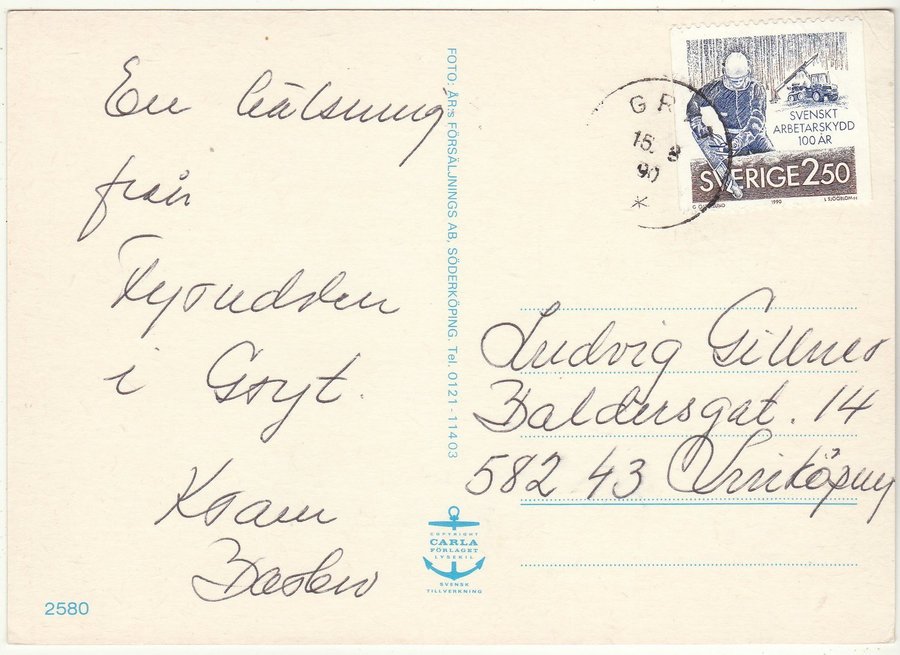 En hälsning
från
Fyrudden
i Gryt.
Kram
FOTO: ÄR:s FÖRSÄLJNINGS AB, SÖDERKÖPING. Tel. 0121 - 114 03
COPYRIGHT
CARLA
FÖRLAGET
LYSEKIL
SVENSK
TILLVERKNING
2580
GR
15. 8
90
*
SVENSKT
ARBETARSKYDD
100 ÅR
SVERIGE 2.50
1990
Ludvig Gillner
Baldersgat. 14
582 43 Linköping